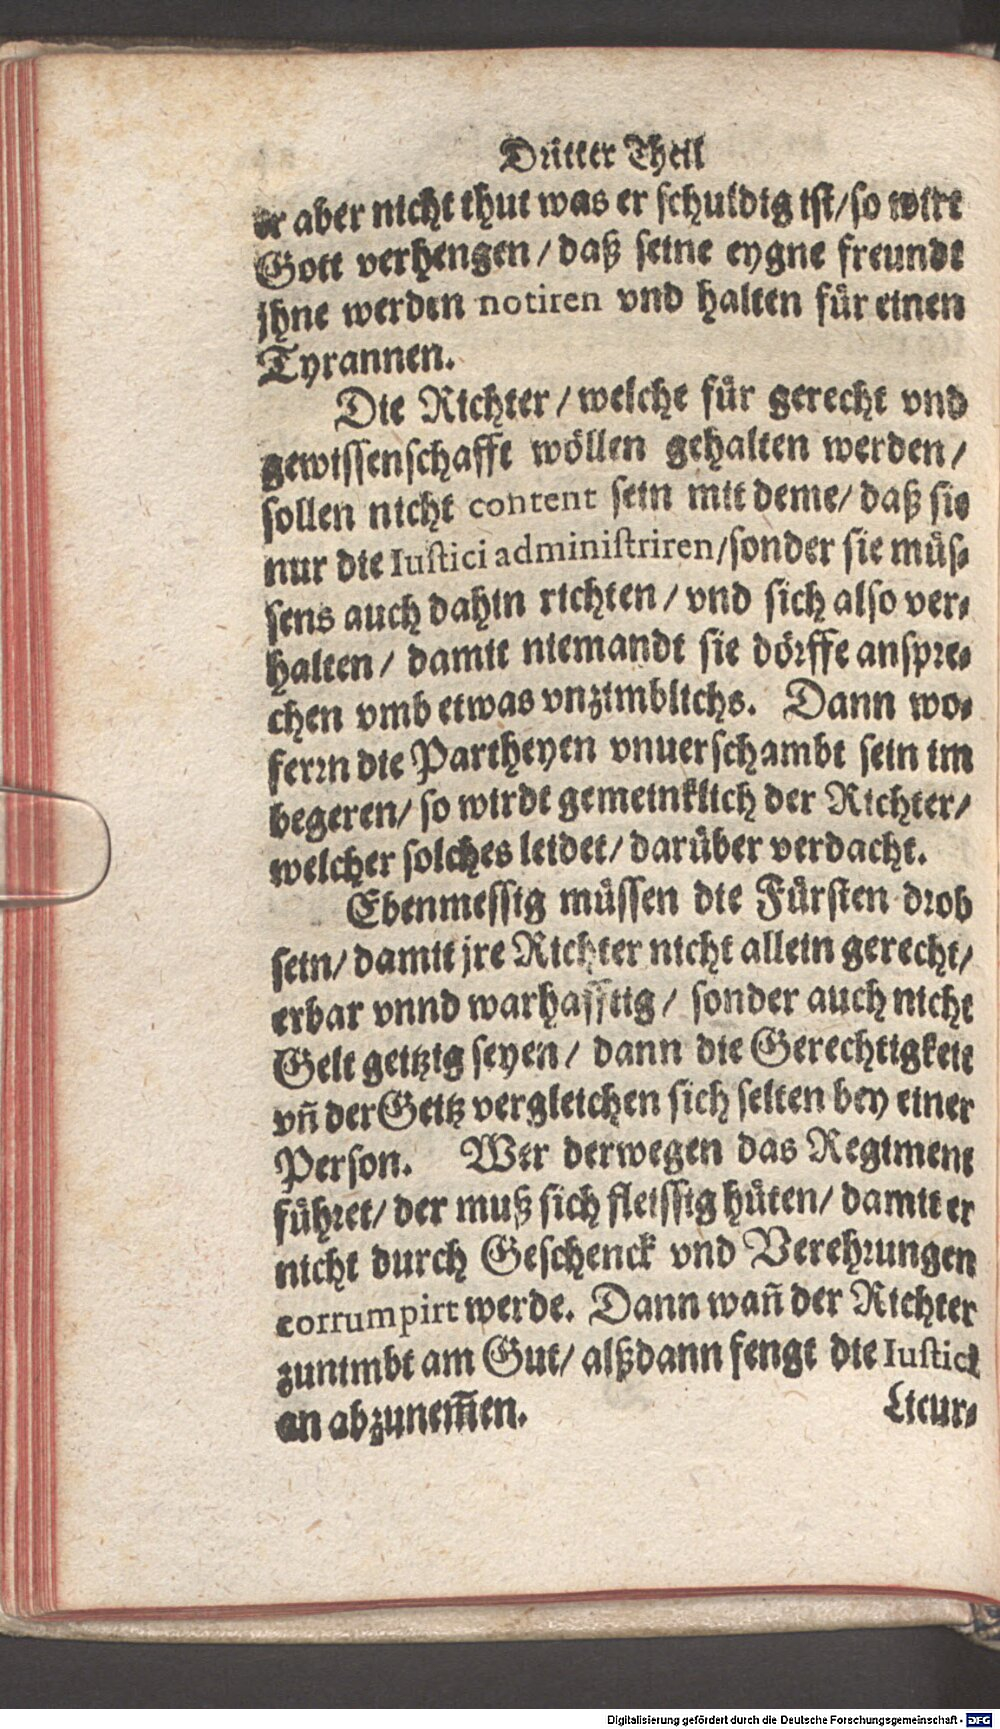 Dritter Theil
er aber nicht thut was er schuldig ist/so wirt
Gott verhengen/daß seine eygne freunde
jhne werden notiren vnd halten für einen
Tyrannen.
Die Richter/welche für gerecht vnd
gewissenschafft wöllen gehalten werden/
sollen nicht content sein mit deme/daß sie
nur die Iustici administriren/sonder sie müs-
sens auch dahin richten/vnd sich also ver-
halten/damit niemandt sie dörffe anspre-
chen vmb etwas vnzimblichs. Dann wo-
ferrn die Partheyen vnuerschambt sein im
begeren/so wirdt gemeinklich der Richter/
welcher solches leidet/darüber verdacht.
Ebenmessig müssen die Fürsten drob
sein/damit jre Richter nicht allein gerecht/
erbar vnnd warhafftig/sonder auch nicht
Gelt geitzig seyen/dann die Gerechtigkeit
vñ der Geitz vergleichen sich selten bey einer
Person. Wer derwegen das Regiment
führet/der muß sich fleissig hüten/damit er
nicht durch Geschenck vnd Verehrungen
corrumpirt werde. Dann wañ der Richter
zunimbt am Gut/alßdann fengt die Iustici
an abzunem̃en.
Licur-
Digitalisierung gefördert durch die Deutsche Forschungsgemeinschaft - DFG